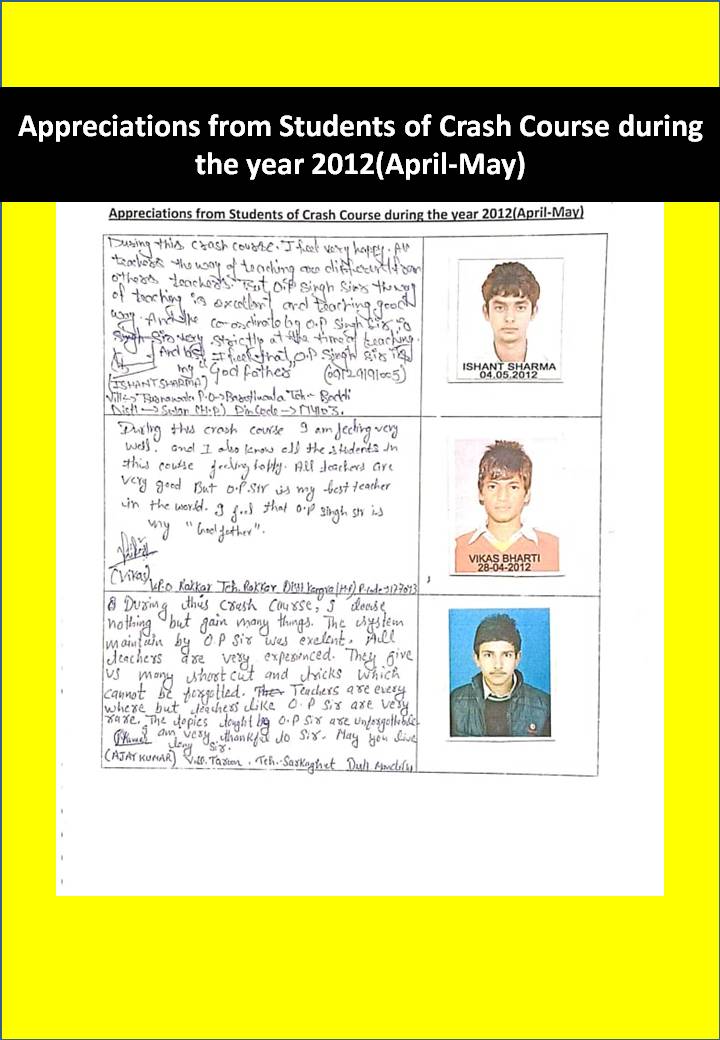 Appreciations from Students of Crash Course during
the year 2012(April-May)
Appreciations from Students of Crash Course during the year 2012(April-May)
During this crash course. I feel very happy. All
teachers the way of teaching are different from
others teachers. But O.P Singh Sirs the way
of teaching is excellent and teaching good
way. And the co-ordinate by O.P Singh Sir, is
Singh Sir very strictly at the time of teaching.
And last I feel that, O.P Singh Sir is
my "God father"
(ISHANT SHARMA)
P.O→ Teh→ Baddi
Distt→ Solan (H.P) Pin Code→
ISHANT SHARMA
04.05.2012
During this crash course I am feeling very
well. and I also know all the students in
this course feeling happy. All teachers are
very good But O.P. Sir is my best teacher
in the world. I feel that O.P Singh Sir is
my "God father".
(Vikas)
V.P.O Rakkar Teh. Rakkar Distt Kangra (H.P)
VIKAS BHARTI
28-04-2012
During this crash course, I loose
nothing but gain many things. The system
maintain by O P Sir was exelent. All
teachers are very experienced. They give
us many short cut and tricks which
cannot be forgotted. Teachers are every
where but teachers like O.P Sir are very
rare. The topics taught by O.P Sir are
I am very thankful to Sir. May you live
long Sir.
(AJAY KUMAR) Teh. Sarkaghat Distt Mandi